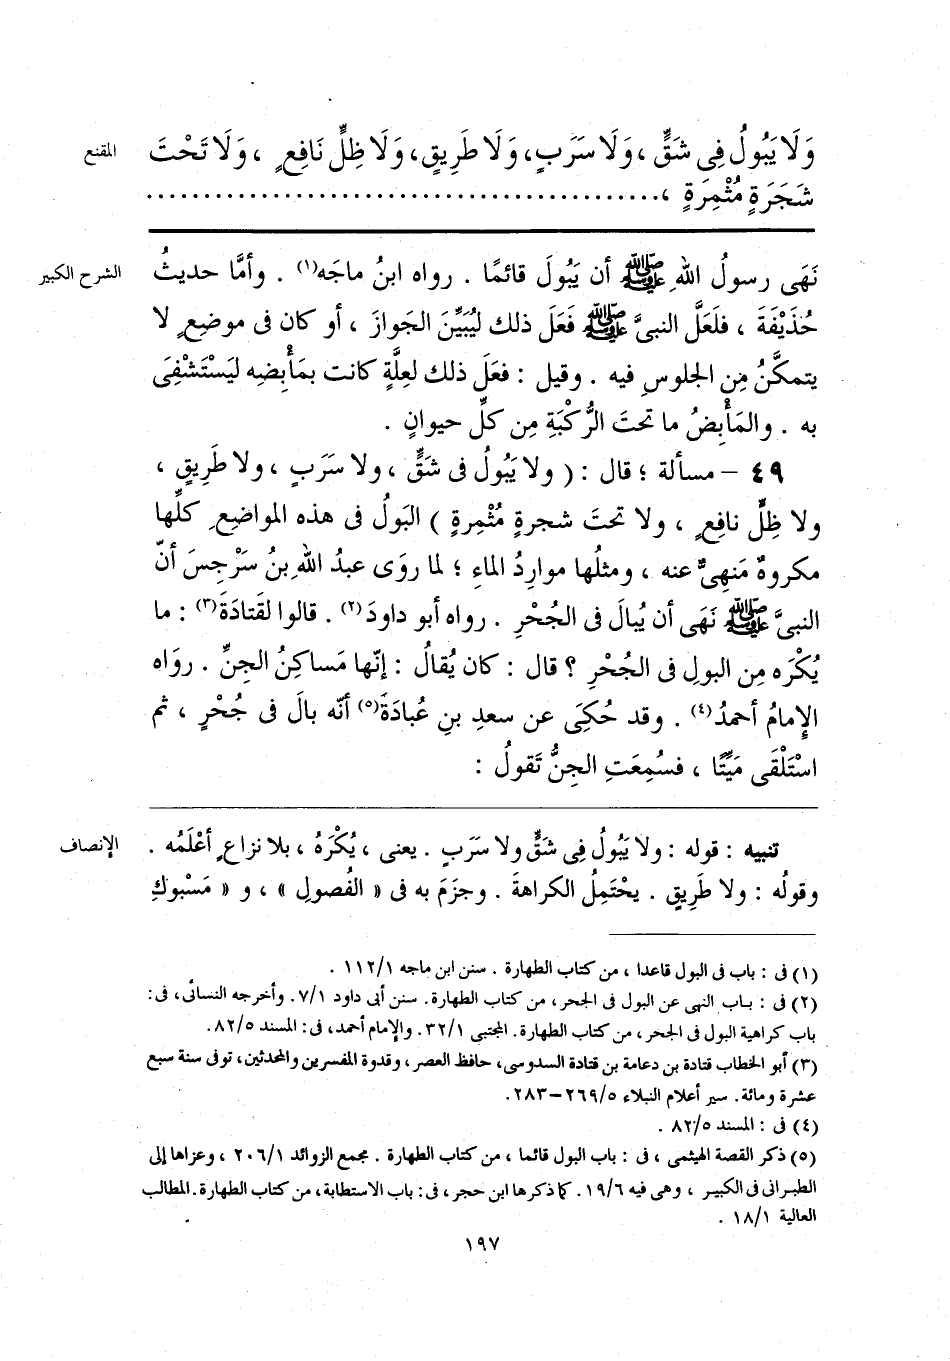 المقنع
وَلَا يَبُولُ فِى شَقٍّ ، وَلَا سَرَبٍ، وَلَا طَرِيقٍ، وَلَا ظِلٍّ نَافِعٍ ، وَلَا تَحْتَ
شَجَرَةٍ مُثْمِرَةٍ ، . . . . . . . . . . . . . . . . . . . . . . . . . . . . . . . . . . . . . . . . . . . . .
الشرح الكبير
نَهَى رسولُ اللهِ ﷺ أن يَبُولَ قائمًا . رواه ابنُ ماجَه(١) . وأمَّا حديثُ
حُذَيْفَةَ ، فلَعَلَّ النبىَّ ﷺ فَعَلَ ذلك ليُبَيِّنَ الجَوازَ ، أو كان فى موضِعٍ لا
يتمكَّنُ مِن الجلوسِ فيه . وقيل : فعَلَ ذلك لعِلَّةٍ كانت بمَأْبِضِه ليَسْتَشْفِىَ
به . والمَأْبِضُ ما تحتَ الرُّكْبَةِ مِن كلِّ حيوانٍ .
٤٩ – مسألة ؛ قال : ( ولا يَبُولُ فى شَقٍّ ، ولا سَرَبٍ ، ولا طَرِيقٍ ،
ولا ظِلٍّ نافِعٍ ، ولا تحتَ شجرةٍ مُثْمِرةٍ ) البَولُ فى هذه المواضِعِ كلِّها
مكروهٌ مَنهِىٌّ عنه ، ومثلُها موارِدُ الماءِ ؛ لما روَى عبدُ اللهِ بنُ سَرْجِسَ أنّ
النبىَّ ﷺ نَهَى أن يُبالَ فى الجُحْرِ . رواه أبو داودَ(٢) . قالوا لقَتادَةَ(٣) : ما
يُكْرَه مِن البولِ فى الجُحْرِ ؟ قال : كان يُقالُ : إنّها مَساكِنُ الجِنِّ . روَاه
الإِمامُ أحمدُ(٤) . وقد حُكِىَ عن سعدِ بنِ عُبادَةَ(٥) أنّه بالَ فى جُحْرٍ ، ثم
اسْتَلْقَى مَيِّتًا ، فسُمِعَتِ الجِنُّ تَقولُ :
الإنصاف
تنبيه : قوله : ولا يَبُولُ فِى شَقٍّ ولا سَرَبٍ . يعنى ، يُكْرَهُ ، بلا نزاعٍ أعْلَمُه .
وقولُه : ولا طَرِيقٍ . يحْتَمِلُ الكراهةَ . وجزَمَ به فى « الفُصولِ » ، و « مَسْبوكِ
(١) فى : باب فى البول قاعدا ، من كتاب الطهارة . سنن ابن ماجه ١١٢/١ .
(٢) فى : باب النهى عن البول فى الجحر، من كتاب الطهارة. سنن أبى داود ٧/١. وأخرجه النسائى، فى:
باب كراهية البول فى الجحر، من كتاب الطهارة. المجتبى ٣٢/١. والإمام أحمد، فى: المسند ٨٢/٥.
(٣) أبو الخطاب قتادة بن دعامة بن قتادة السدوسى، حافظ العصر، وقدوة المفسرين والمحدثين، توفى سنة سبع
عشرة ومائة. سير أعلام النبلاء ٢٦٩/٥–٢٨٣.
(٤) فى : المسند ٨٢/٥ .
(٥) ذكر القصة الهيثمى ، فى : باب البول قائما ، من كتاب الطهارة . مجمع الزوائد ٢٠٦/١ ، وعزاها إلى
الطبرانى فى الكبير ، وهى فيه ١٩/٦. كما ذكرها ابن حجر، فى: باب الاستطابة، من كتاب الطهارة. المطالب
العالية ١٨/١ .
١٩٧